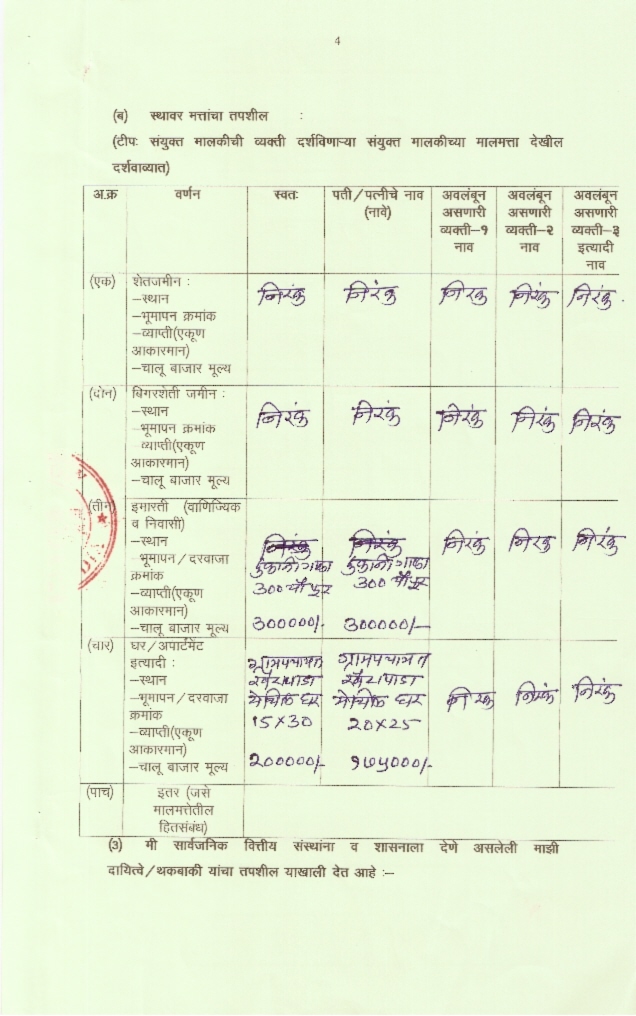 4
(ब) स्थावर मत्तांचा तपशील :
(टीपः संयुक्त मालकीची व्यक्ती दर्शविणाऱ्या संयुक्त मालकीच्या मालमत्ता देखील
दर्शवाव्यात)
अ.क्र वर्णन स्वतः पती/पत्नीचे नाव (नावे) अवलंबून असणारी व्यक्ती–१ नाव अवलंबून असणारी व्यक्ती–२ नाव अवलंबून असणारी व्यक्ती–३ इत्यादी नाव
(एक) शेतजमीन :
–स्थान निरंक निरंक निरंक निरंक निरंक
–भूमापन क्रमांक
–व्याप्ती(एकूण
आकारमान)
–चालू बाजार मूल्य
(दोन) बिगरशेती जमीन :
–स्थान निरंक निरंक निरंक निरंक निरंक
–भूमापन क्रमांक
–व्याप्ती(एकूण
आकारमान)
–चालू बाजार मूल्य
(तीन) इमारती (वाणिज्यिक
व निवासी)
–स्थान निरंक निरंक निरंक निरंक निरंक
–भूमापन/दरवाजा दुकानी गाळा दुकानी गाळा
क्रमांक 300 चौ फुट 300 चौ फुट
–व्याप्ती(एकूण
आकारमान)
–चालू बाजार मूल्य 300000/- 300000/-
(चार) घर/अपार्टमेंट
इत्यादी : ग्रामपंचायत ग्रामपंचायत
–स्थान
–भूमापन/दरवाजा घर घर निरंक निरंक निरंक
क्रमांक 15×30 20×25
–व्याप्ती(एकूण
आकारमान)
–चालू बाजार मूल्य 200000/- १७५०००/-
(पाच) इतर (जसे
मालमत्तेतील
हितसंबंध)
(3) मी सार्वजनिक वित्तीय संस्थांना व शासनाला देणे असलेली माझी
दायित्वे/थकबाकी यांचा तपशील याखाली देत आहे :–